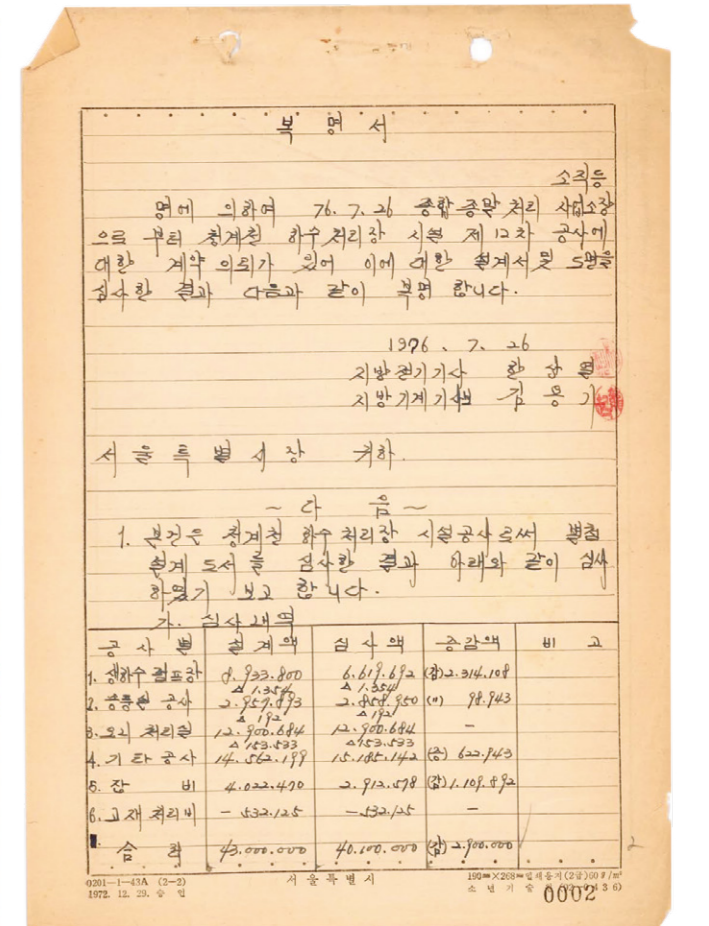 복 명 서
소직등
명에 의하여 76. 7. 26 종합 종말 처리 사업소장
으로 부터 청계천 하수처리장 시설 제 12차 공사에
대한 계약 의뢰가 있어 이에 대한 설계서 및 도면을
심사한 결과 다음과 같이 복명 합니다.
1976. 7. 26
지방전기기사 한상열
지방기계기사보 김용기
서 울 특 별 시 장 귀하.
~ 다 음 ~
1. 본건은 청계천 하수처리장 시설공사로써 별첨
설계 도서를 심사한 결과 아래와 같이 심사
하였기 보고 합니다.
가. 심사내역
공 사 별 설 계 액 심 사 액 증감액 비 고
1. 생하수 펌프장 8.933.800 6.619.692 (감)2.314.108
△1.354 △1.354
2. 송풍실 공사 2.957.893 2.858.950 (〃) 98.943
△192 △192
3. 오니 처리실 12.900.684 12.900.684 —
△153.533 △153.533
4. 기타공사 14.562.199 15.185.142 (증) 622.943
5. 잡 비 4.022.470 2.912.578 (감)1.109.892
6. 고재 처리비 -532.125 -532.125 —
합 계 43.000.000 40.100.000 (감)2.900.000
2
0201—1—43A (2-2) 서 울 특 별 시 190㎜×268㎜ (2급)60g/㎡
1972. 12. 29. 승 인
0002